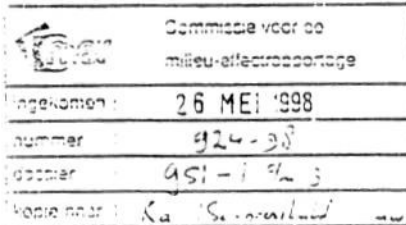 Commissie voor de
milieu-effectrapportage
ingekomen : 26 MEI 1998
nummer 924-98
dossier 951-1 t/m 3
kopie naar : Ka